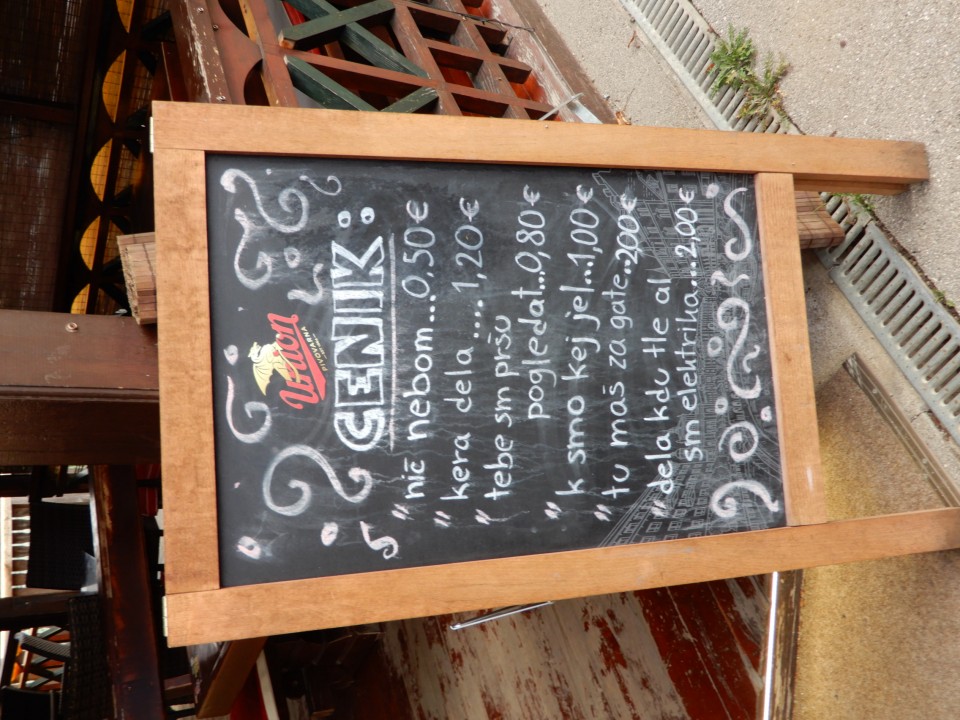 Union
PIVOVARNA
CENIK:
"nič nebom...0,50€
"kera dela.... 1,20€
"tebe sm pršu
pogledat...0,80€
"k smo kej jel...1,00€
"tu maš za gate...2,00€
"dela kdu tle al
sm elektriha...2,00€